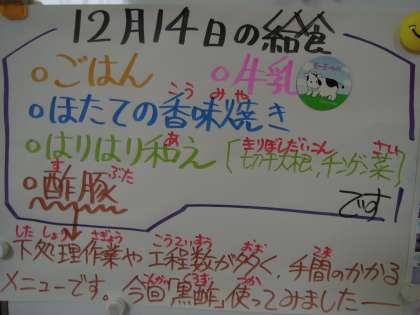 12月14日の給食
○ごはん ○牛乳
こう み や
○ほたての香味焼き
あ きりぼしだいこん さい
○はりはり和え〔切干大根,チンゲン菜〕
す ぶた
○酢豚 です
した しょり さぎょう こうていすう おお てま
下処理作業や工程数が多く、手間のかかる
こんかい くろず つか
メニューです。今回「黒酢」使ってみましたー